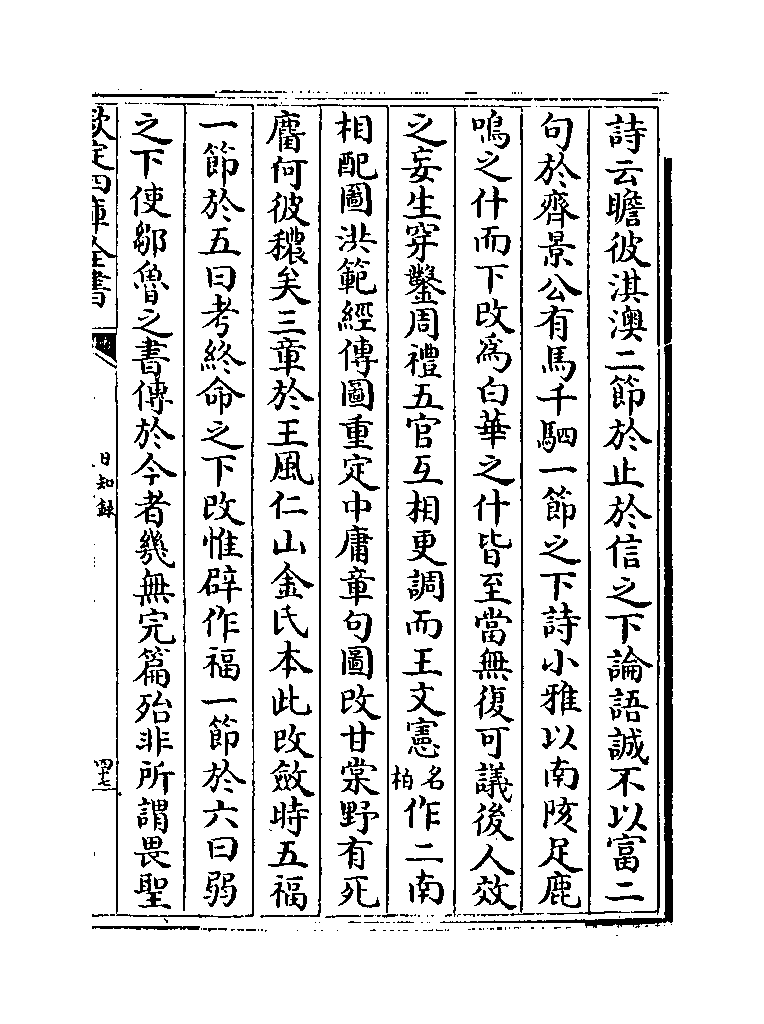 詩云瞻彼淇澳二節於止於信之下論語誠不以富二
句於齊景公有馬千駟一節之下詩小雅以南陔足鹿
鳴之什而下改為白華之什皆至當無復可議後人效
之妄生穿鑿周禮五官互相更調而王文憲名柏作二南
相配圖洪範經傳圖重定中庸章句圖改甘棠野有死
麕何彼穠矣三章於王風仁山金氏本此改斂時五福
一節於五曰考終命之下改惟辟作福一節於六曰弱
之下使鄒魯之書傳於今者幾無完篇殆非所謂畏聖
欽定四庫全書
日知録